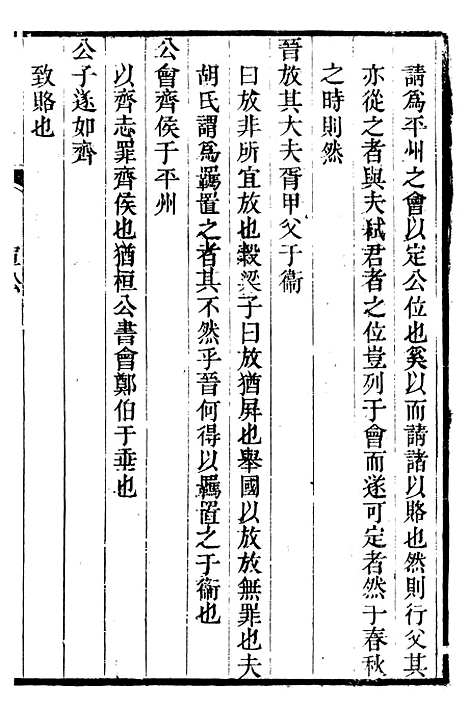 請爲平州之會以定公位也奚以而請諸以賂也然則行父其
亦從之者與夫弑君者之位豈列于會而遂可定者然于春秋
之時則然
晉放其大夫胥甲父于衞
曰放非所宜放也穀梁子曰放猶屏也舉國以放放無罪也夫
胡氏謂爲羈置之者其不然乎晉何得以羈置之于衞也
公會齊侯于平州
以齊志罪齊侯也猶桓公書會鄭伯于垂也
公子遂如齊
致賂也